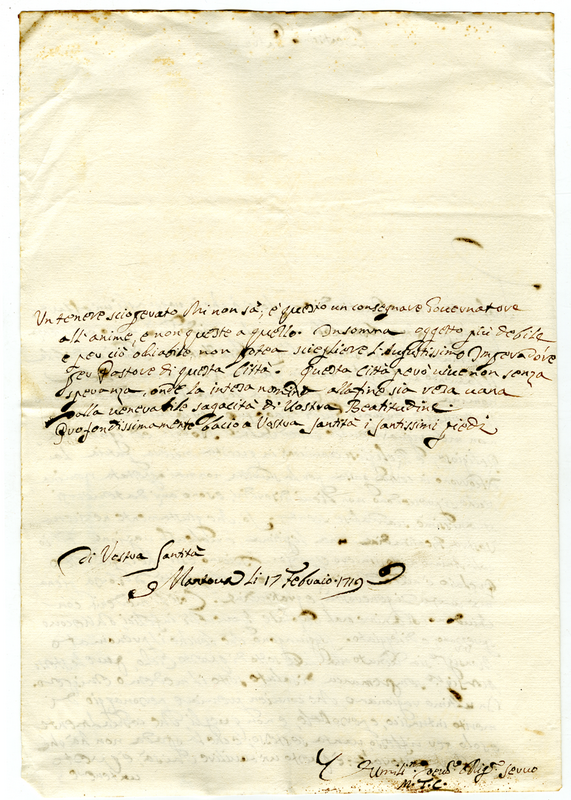 Un tenere sciogerato chi non sà; è questo un consegnare Governatore
all'anime, e non queste a quello. Insomma oggetto più debile
e per ciò obliabile non potea sciegliere l'Augustissimo Imperadore
per Pastore di questa Città. Questa Città però vive non senza
speranza, onde la intesa nomina alla fine sia resa vana
dalla venerabile sagacità di Vostra Beatitudine
Profondissimamente bacio a Vostra Santità i santissimi piedi
di Vostra Santità
Mantova li 17 Febraio 1719
servo
M. T. C.